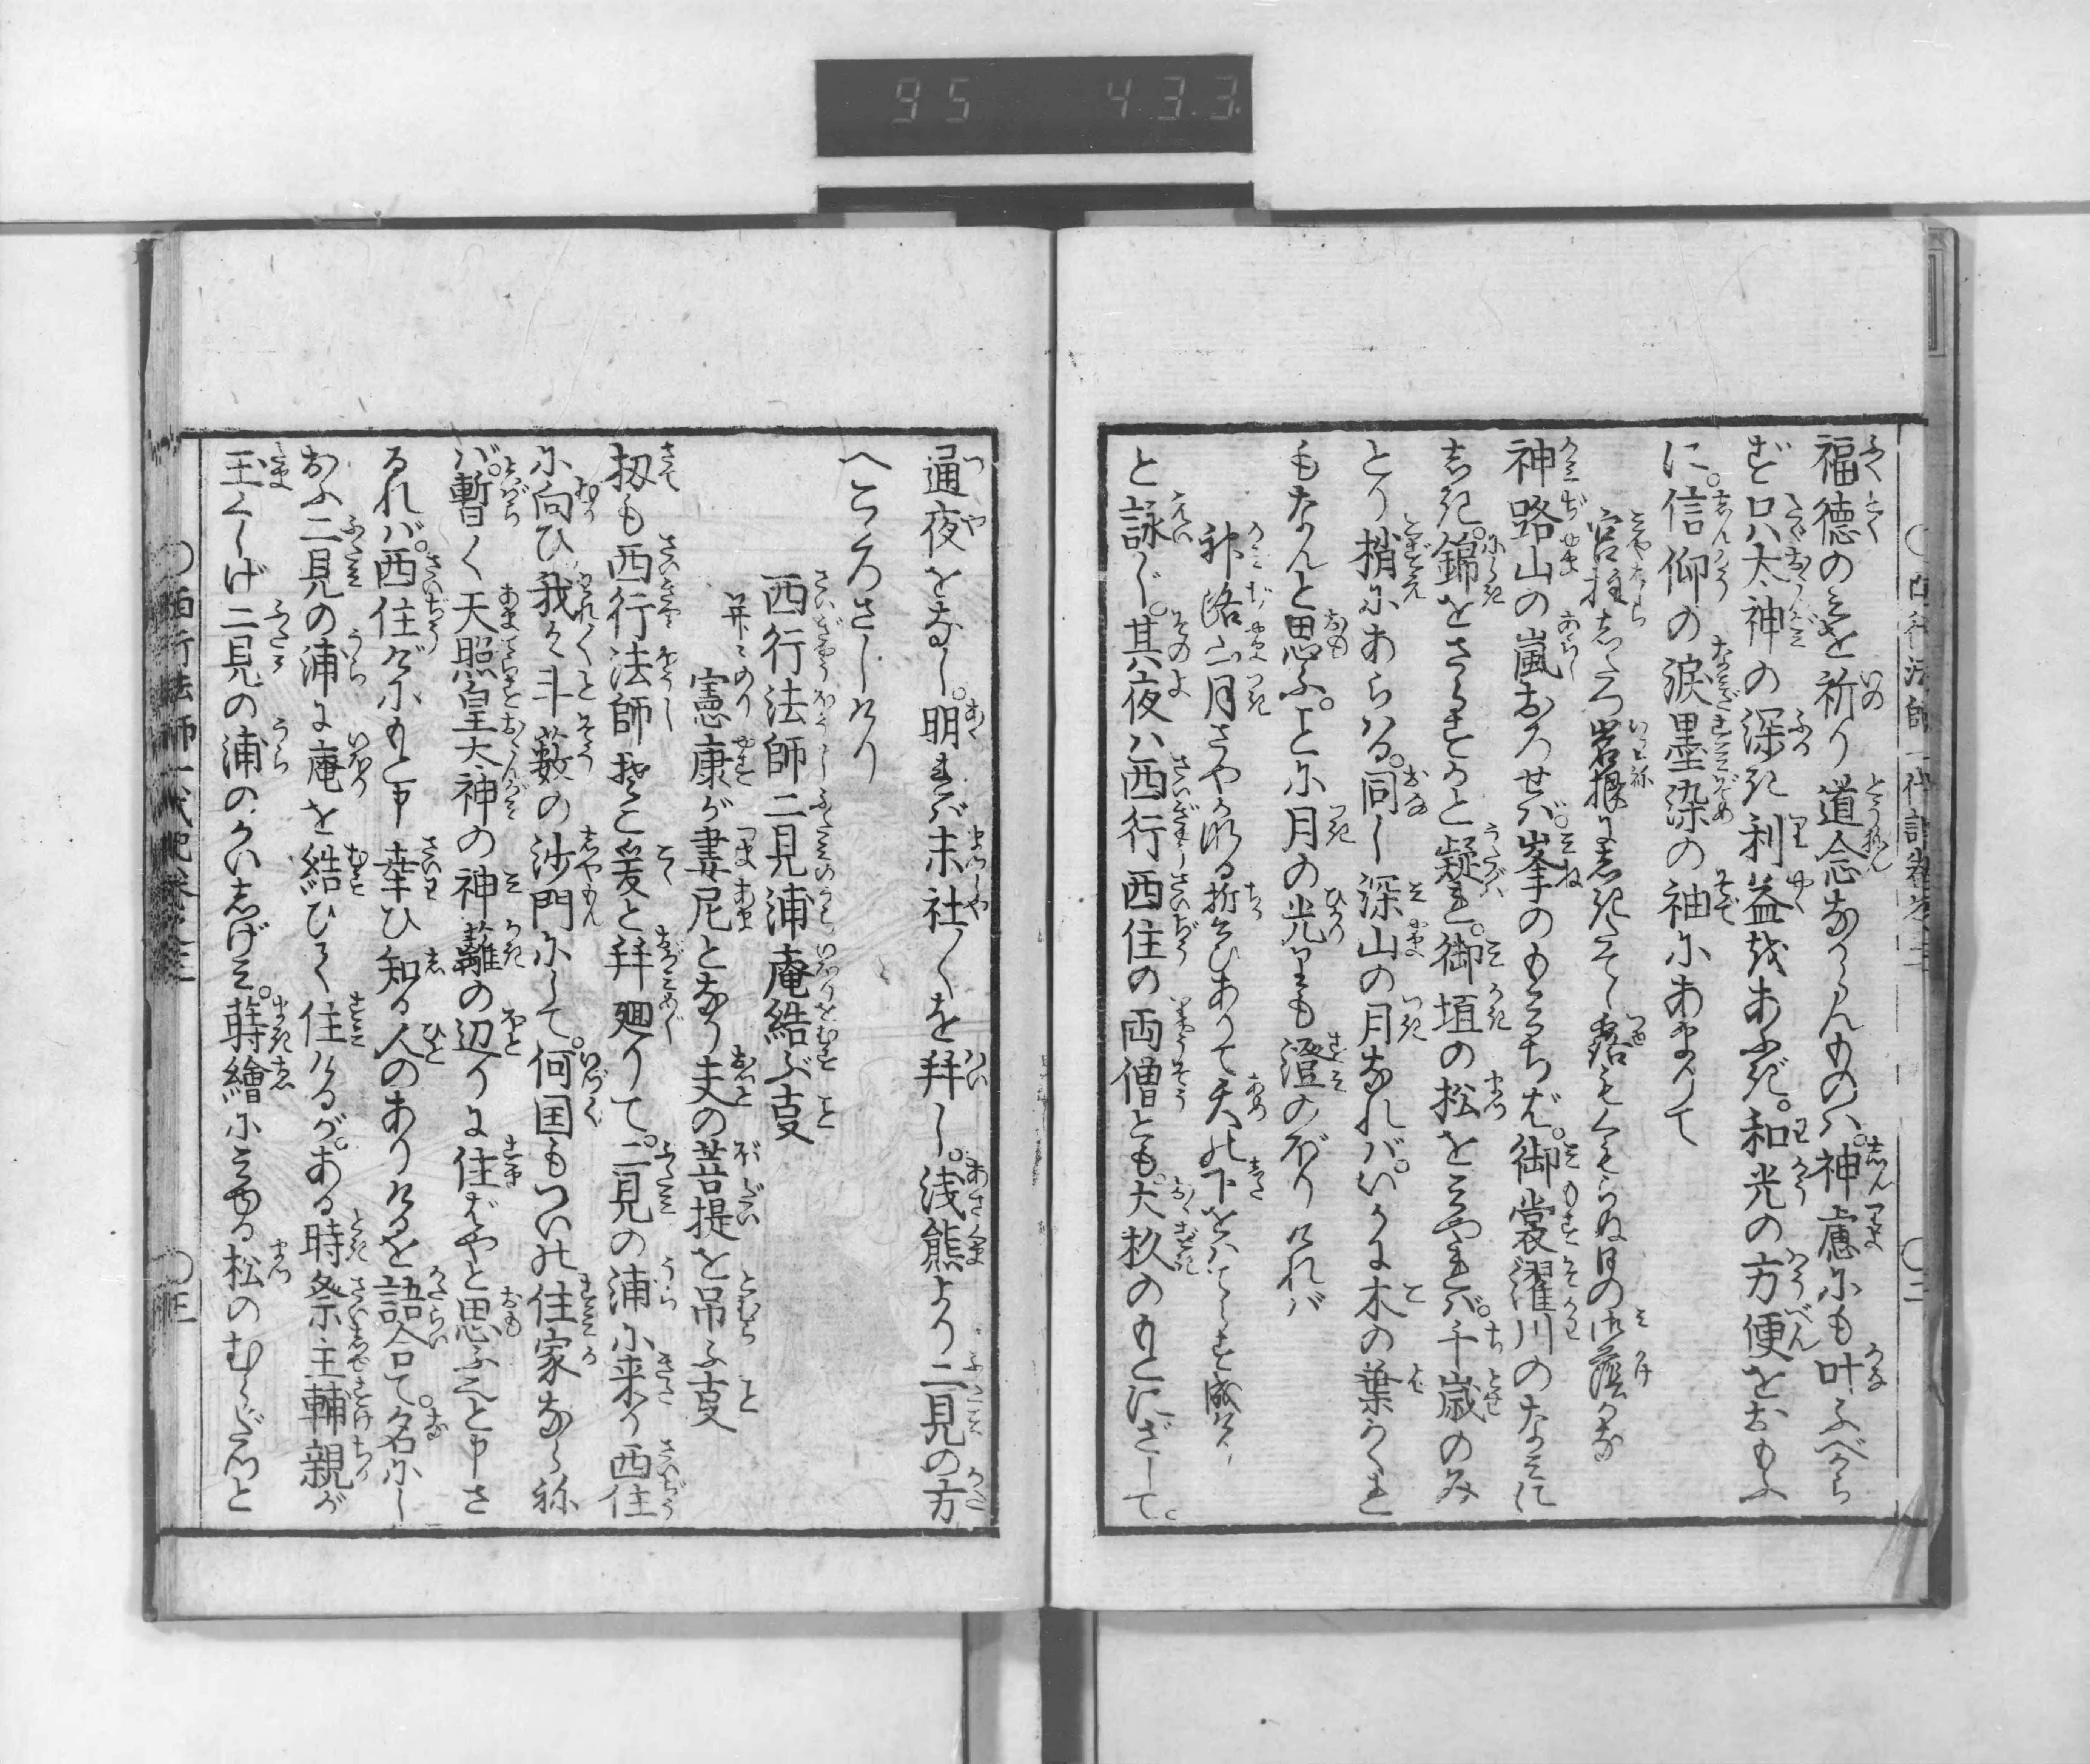 95 433
福徳のミを祈り道念なからんものハ。神慮にも叶ふべから
ず只太神の深き利益越あふぎ。和光の方便をおもふ
に。信仰の涙墨染の袖にあまりて
宮柱したつ岩根にしきたてゝ露もくもらぬ日の御蔭かな
神路山の嵐おろせバ。峯のもみぢば。御裳濯川のなミに
しき。錦をさらすかと疑れ。御垣の松をミやれバ。千歳のみ
とり梢にあらハる。同し深山の月なれバ。いかに木の葉かくれ
もなんと思ふ。ことに月の光りも澄のぼりけれバ
神路山月さやかなる誓ひありて天の下をハてらす成けり
と詠じ。其夜ハ西行西住の両僧とも。大杉のもとにざして。
通夜をなし。明れバ末社〳〵を拝し。浅熊より二見の方
へこゝろさしけり
西行法師二見浦庵結ぶ事
并ニ憲康が妻尼となり夫の菩提を吊ふ事
扨も西行法師そこ爰と拝廻りて。二見の浦に来り西住
に向ひ我々斗藪の沙門にして。何国もついの住家ならね
バ。暫く天照皇太神の神籬の辺りに住ばやと思ふ也と申さ
るれバ。西住げにもと申幸ひ知る人のありけるを語合て。名にし
おふ二見の浦に庵を結ひて住けるが。ある時祭主輔親が
玉くしげ二見の浦のかいしげミ。蒔繪にミゆる松のむらだちと
西行法師一代記巻之三
〇三